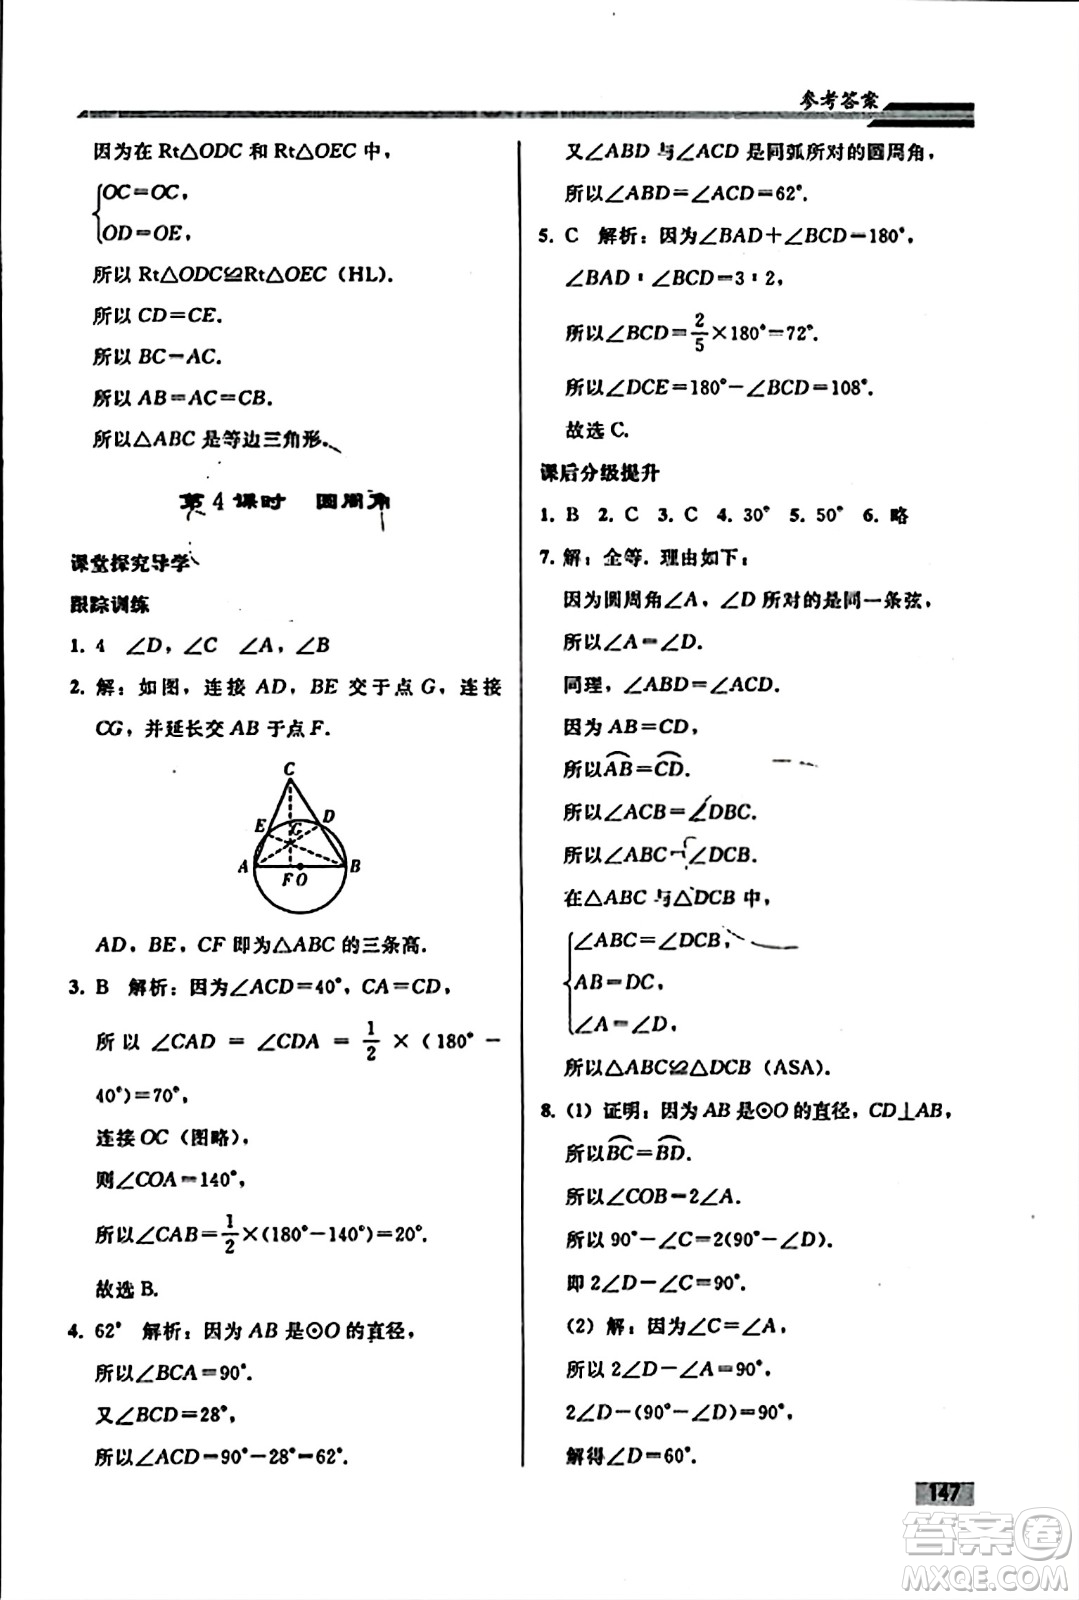 参考答案
因为在 Rt△ODC 和 Rt△OEC 中，
OC=OC，
OD=OE，
所以 Rt△ODC≌Rt△OEC（HL）.
所以 CD=CE.
所以 BC=AC.
所以 AB=AC=CB.
所以△ABC 是等边三角形.
第 4 课时 圆周角
课堂探究导学
跟踪训练
1. 4 ∠D，∠C ∠A，∠B
2. 解：如图，连接 AD，BE 交于点 G，连接
CG，并延长交 AB 于点 F.
C
E
D
G
A
B
F O
AD，BE，CF 即为△ABC 的三条高.
3. B 解析：因为∠ACD=40°，CA=CD，
所以 ∠CAD = ∠CDA = 1/2 ×（180°−
40°）=70°，
连接 OC（图略），
则∠COA=140°，
所以∠CAB=1/2×(180°−140°)=20°.
故选 B.
4. 62° 解析：因为 AB 是⊙O 的直径，
所以∠BCA=90°.
又∠BCD=28°，
所以∠ACD=90°−28°=62°.
又∠ABD 与∠ACD 是同弧所对的圆周角，
所以∠ABD=∠ACD=62°.
5. C 解析：因为∠BAD+∠BCD=180°，
∠BAD∶∠BCD=3∶2，
所以∠BCD=2/5×180°=72°.
所以∠DCE=180°−∠BCD=108°.
故选 C.
课后分级提升
1. B 2. C 3. C 4. 30° 5. 50° 6. 略
7. 解：全等. 理由如下：
因为圆周角∠A，∠D 所对的是同一条弦，
所以∠A=∠D.
同理，∠ABD=∠ACD.
因为 AB=CD，
所以⌒AB=⌒CD.
所以∠ACB=∠DBC.
所以∠ABC=∠DCB.
在△ABC 与△DCB 中，
∠ABC=∠DCB，
AB=DC，
∠A=∠D，
所以△ABC≌△DCB（ASA）.
8.（1）证明：因为 AB 是⊙O 的直径，CD⊥AB，
所以⌒BC=⌒BD.
所以∠COB=2∠A.
所以 90°−∠C=2(90°−∠D).
即 2∠D−∠C=90°.
（2）解：因为∠C=∠A，
所以 2∠D−∠A=90°，
2∠D−(90°−∠D)=90°，
解得∠D=60°.
147
答案卷
MXQE.COM